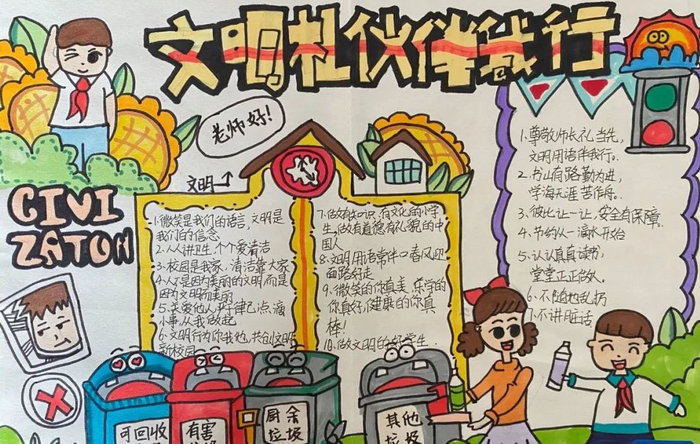 文明礼伙伴我行
老师好!
文明
CIVI
ZATON
1.微笑是我们的语言,文明是
我们的信念
2.人人讲卫生,个个爱清洁
3.校园是我家,清洁靠大家
4.人不是因为美丽的文明,而是
因为文明而美丽
5.关爱他人
小事,从我做起
6.文明行为你我他,共创文明
新校园
7.做有知识,有文化的小学
生,做有道德有礼貌的中
国人
8.文明用语常开口春风迎
面路好走
9.微笑的你真美,乐学的
你真好,健康的你真
棒!
10.做文明的好学生
1.尊敬师长礼当先,
文明用语伴我行.
2.书山有路勤为进,
学海无涯苦作舟.
3.彼此让一让,安全有保障
4.节约从一滴水开始
5.认认真真读书,
堂堂正正做人.
6.不随地乱扔
7.不讲脏话
可回收
有害
厨余
垃圾
其他
垃圾